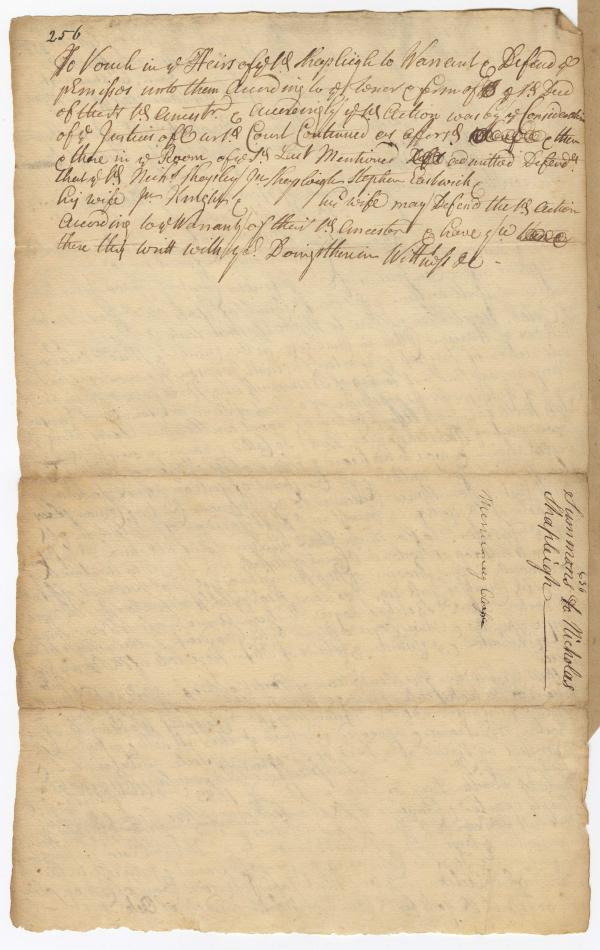 256
To Vouch in ye Heirs of ye sd Shapleigh to Warrant & Defend ye
premisses unto them according to ye tenor & form of ye sd Deed
of their sd Ancestr & accordingly ye sd Action was by ye Consideration
of ye Justices of Our sd Court Continued as aforsd & then
& there in ye Room of ye sd Last Mentioned admitted Defendts
that ye sd Nichs Shapley Jn Shapleigh Stephen Eastwick &
his wife Jn Knight & his wife may Defend the sd Action
according to ye Warranty of their sd Ancestor & have you
there this writt with yr Doings therein Wittness &c -
Summons to Nicholas
Shapleigh
436